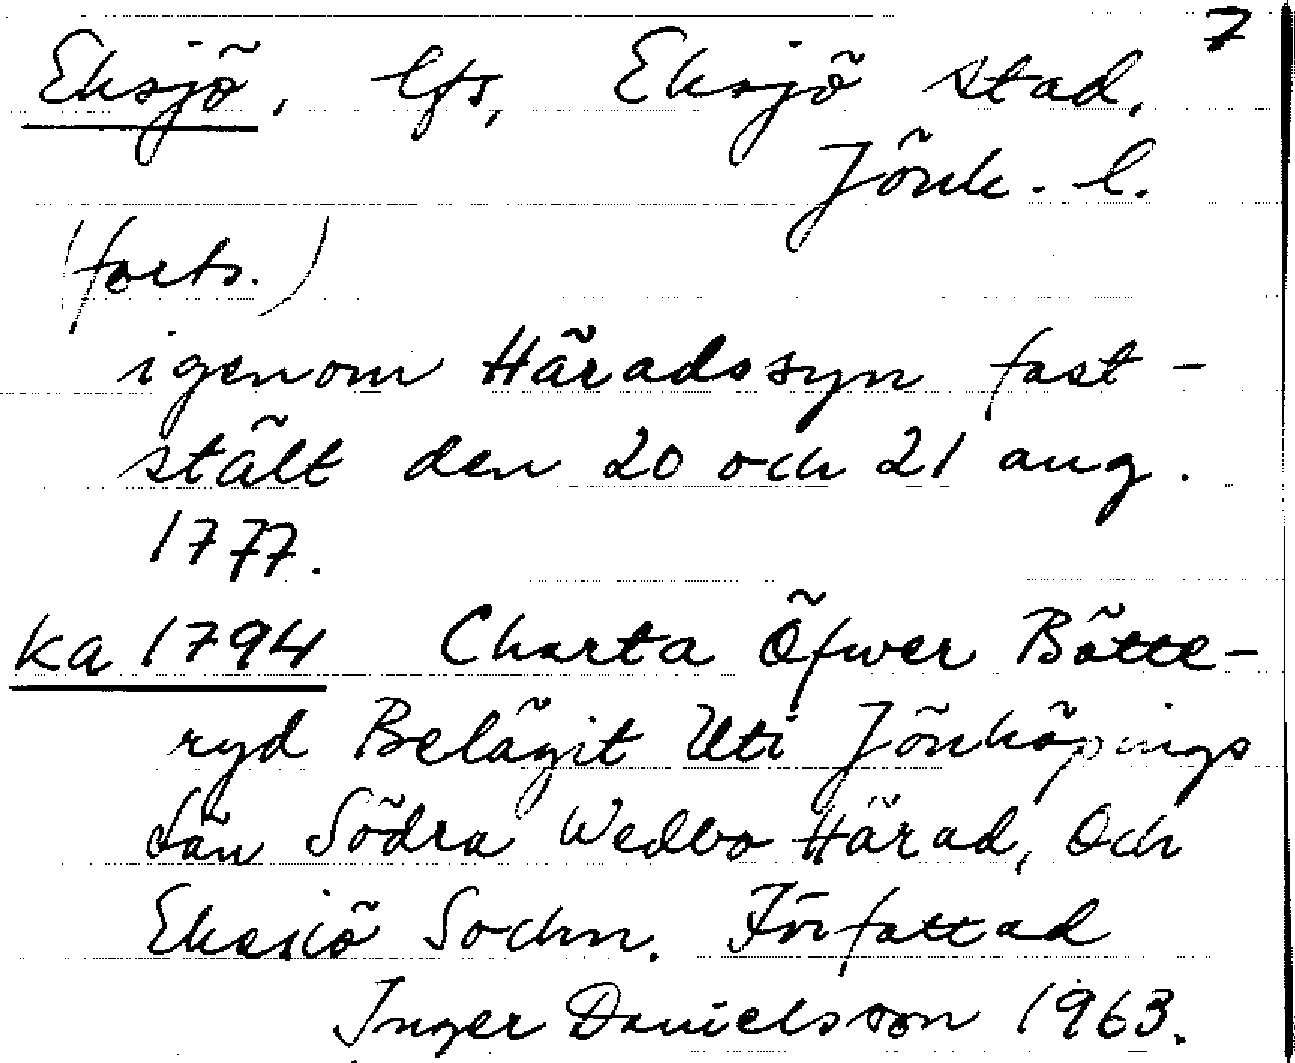 7
Eksjö, lfs, Eksjö stad,
Jönk. l.
(forts.)
igenom Häradssyn fast-
stält den 20 och 21 aug.
1777.
ka 1794 Charta Öfwer Bötte-
ryd Belägit Uti Jönköpings
Län Södra Wedbo Härad, Och
Eksiö Sochn. Författad
Inger Danielsson 1963.